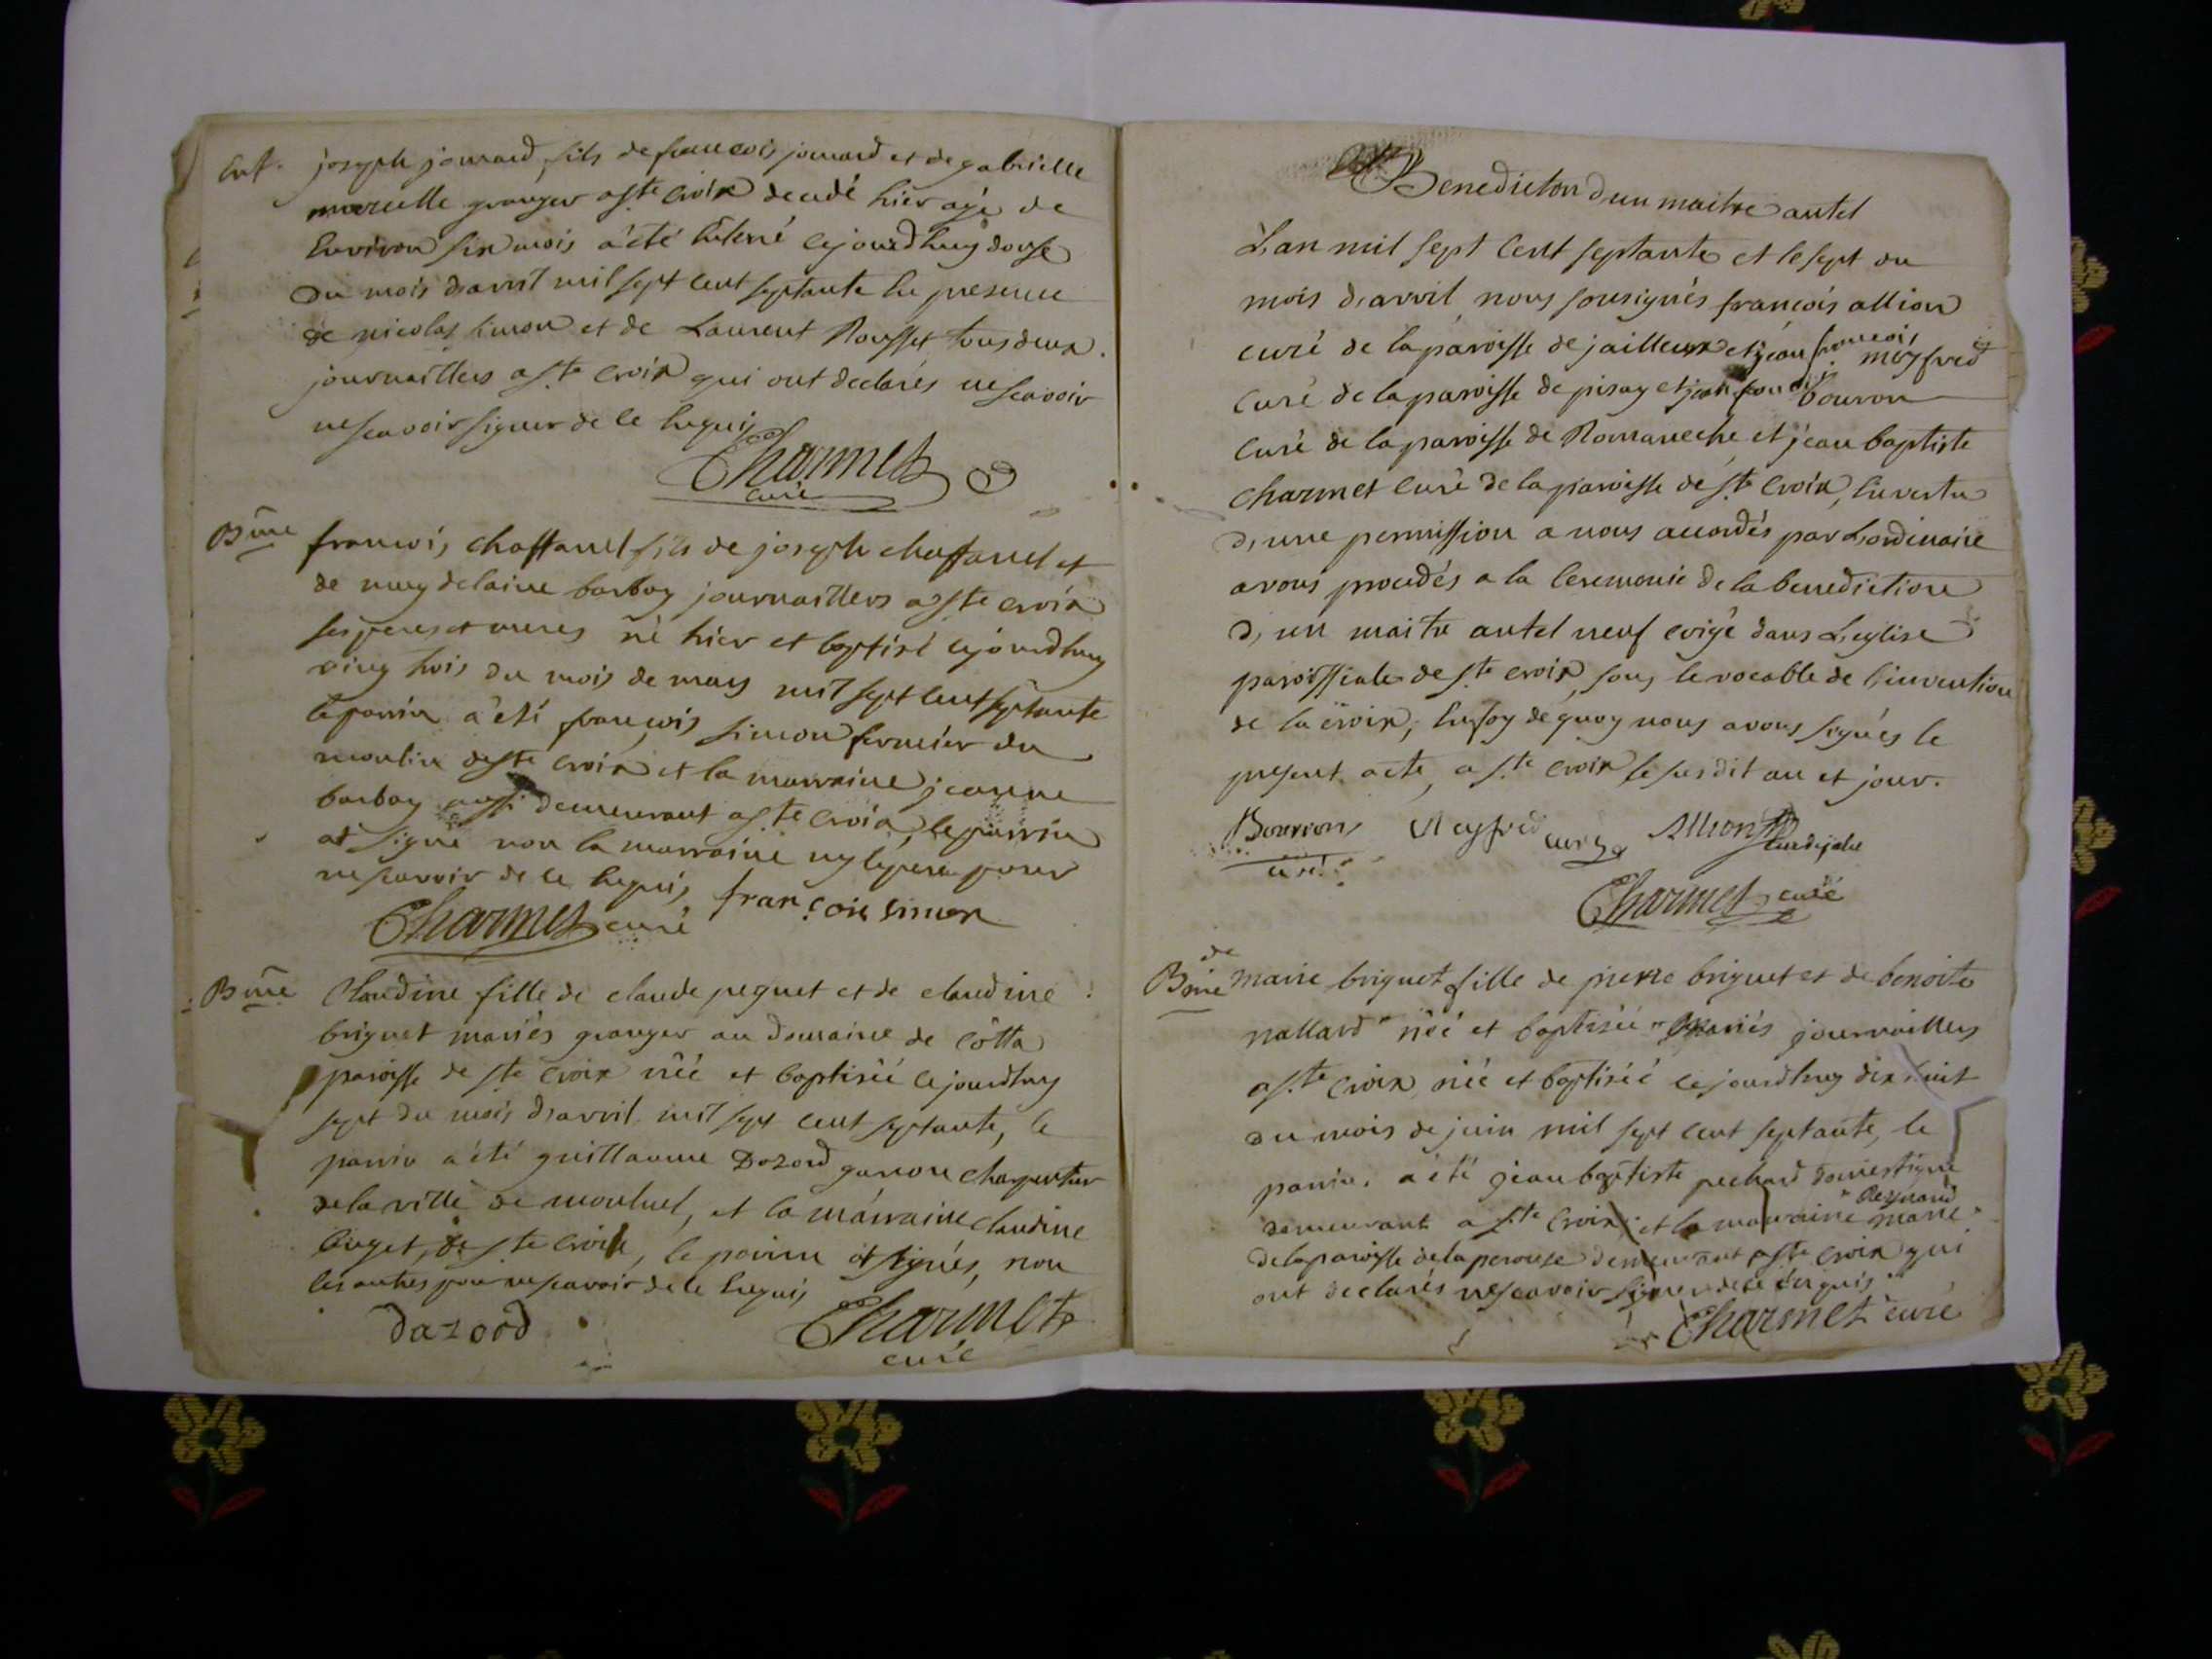 Ent. joseph jomard, fils de francois jomard et de gabrielle
granger a ste croix decedé hier agé de
Environ six mois a été Enterré cejourdhuy douse
du mois d,avril mil sept cent septante En presence
de nicolas simon et de Laurent Rousset tous deux
journailliers a ste croix qui ont declarés ne scavoir
ne scavoir signer de ce Enquis
Charmet
curé
Bme francois chaffanel fils de joseph chaffanel et
de magdelaine barbay journailliers a ste croix
ses peres et meres né hier et baptisé cejourdhuy
ving trois du mois de mars mil sept cent septante
le parrin a été francois simon fermier du
moulin de ste croix et la marraine jeanne
barbay aussi demeurant a ste croix, le parrin
at signé non la marraine ny le pere pour
ne scavoir de ce Enquis, françois simon
Charmet curé
Bme Claudine fille de claude peguet et de claudine
briguet mariés granger au domaine de Cotta
paroisse de ste croix néé et baptiséé cejourdhuy
sept du mois d,avril mil sept cent septante, le
parrin a été guillaume Dozord garcon charpentier
de la ville de montluel, et la marraine claudine
buget, de ste croix, le parrin at signés, non
les autres pour ne scavoir de ce Enquis
dazord Charmet
curé
Benediction d un maitre autel
L,an mil sept cent septante et le sept du
mois d,avril, nous sousignés francois allion
curé de la paroisse de jailleux et jean francois meyfred
curé de la paroisse de pisay et bouron
curé de la paroisse de Romaneche, et jean baptiste
charmet curé de la paroisse de ste croix, En vertu
d,une permission a nous accordés par L,ordinaire
avons procedés a la Ceremonie de la benediction
d,un maitre autel neuf erigé dans L,eglise
paroissiale de ste croix, sous le vocable de l,invention
de la croix, En foy de quoy nous avons signés le
present acte, a ste croix le susdit an et jour.
Bourron Meyfred curé Allion
curé
Charmet curé
Bme de marie briguet fille de pierre briguet et de benoite
nallard néé et baptiséé mariés journailliers
a ste croix, néé et baptiséé cejourdhuy dix huit
du mois de juin mil sept cent septante, le
parrin a été jean baptiste pechard domestique
demeurant a ste Croix et la marraine marie Reynard
de la paroisse de la perouse demeurant a ste croix qui
ont declarés ne scavoir signer de ce Enquis
Charmet curé